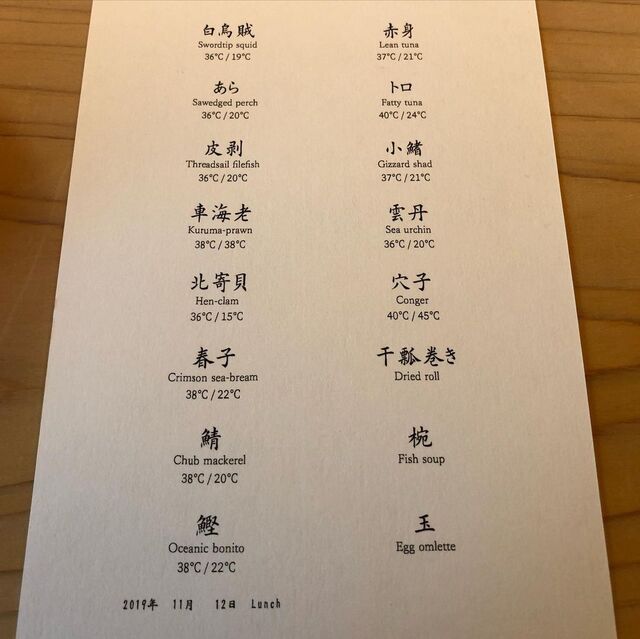 白烏賊
Swordtip squid
36℃ / 19℃
あら
Sawedged perch
36℃ / 20℃
皮剥
Threadsail filefish
36℃ / 20℃
車海老
Kuruma-prawn
38℃ / 38℃
北寄貝
Hen-clam
36℃ / 15℃
春子
Crimson sea-bream
38℃ / 22℃
鯖
Chub mackerel
38℃ / 20℃
鰹
Oceanic bonito
38℃ / 22℃
赤身
Lean tuna
37℃ / 21℃
トロ
Fatty tuna
40℃ / 24℃
小鰭
Gizzard shad
37℃ / 21℃
雲丹
Sea urchin
36℃ / 20℃
穴子
Conger
40℃ / 45℃
干瓢巻き
Dried roll
椀
Fish soup
玉
Egg omlette
2019年 11月 12日 Lunch